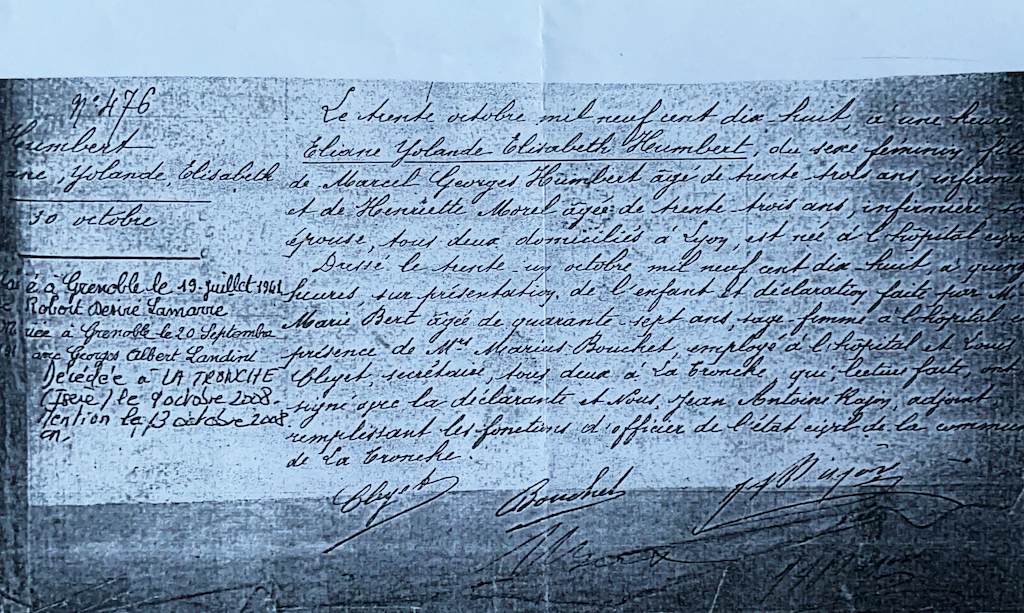 N° 476
Humbert
ane, Yolande, Elisabeth
30 octobre
é à Grenoble le 19 juillet 1941
Robert Desiré Lamarre
ée à Grenoble le 20 Septembre
avec Georges Albert Landini
Décédée à LA TRONCHE
(Isère) le 9 octobre 2008.
Mention le 13 octobre 2008.
Le trente octobre mil neuf cent dix huit, à une heure
Eliane Yolande Elisabeth Humbert, du sexe féminin, fille
de Marcel Georges Humbert âgé de trente trois ans, infirmi
et de Henriette Morel âgée de trente trois ans, infirmière, so
épouse, tous deux domiciliés à Lyon, est née à l'hôpital civil
Dressé le trente un octobre mil neuf cent dix huit, à quinze
heures, sur présentation de l'enfant et déclaration faite par M
Marie Bert âgée de quarante sept ans, sage femme à l'hôpital c
présence de Mrs Marius Bouchet, employé à l'hôpital et Louis
Cleyet, secrétaire, tous deux à La Tronche, qui, lecture faite, ont
signé avec la déclarante et Nous, Jean Antoine adjoint,
remplissant les fonctions d'officier de l'état civil de la commun
de La Tronche.
Cleyet Bouchet